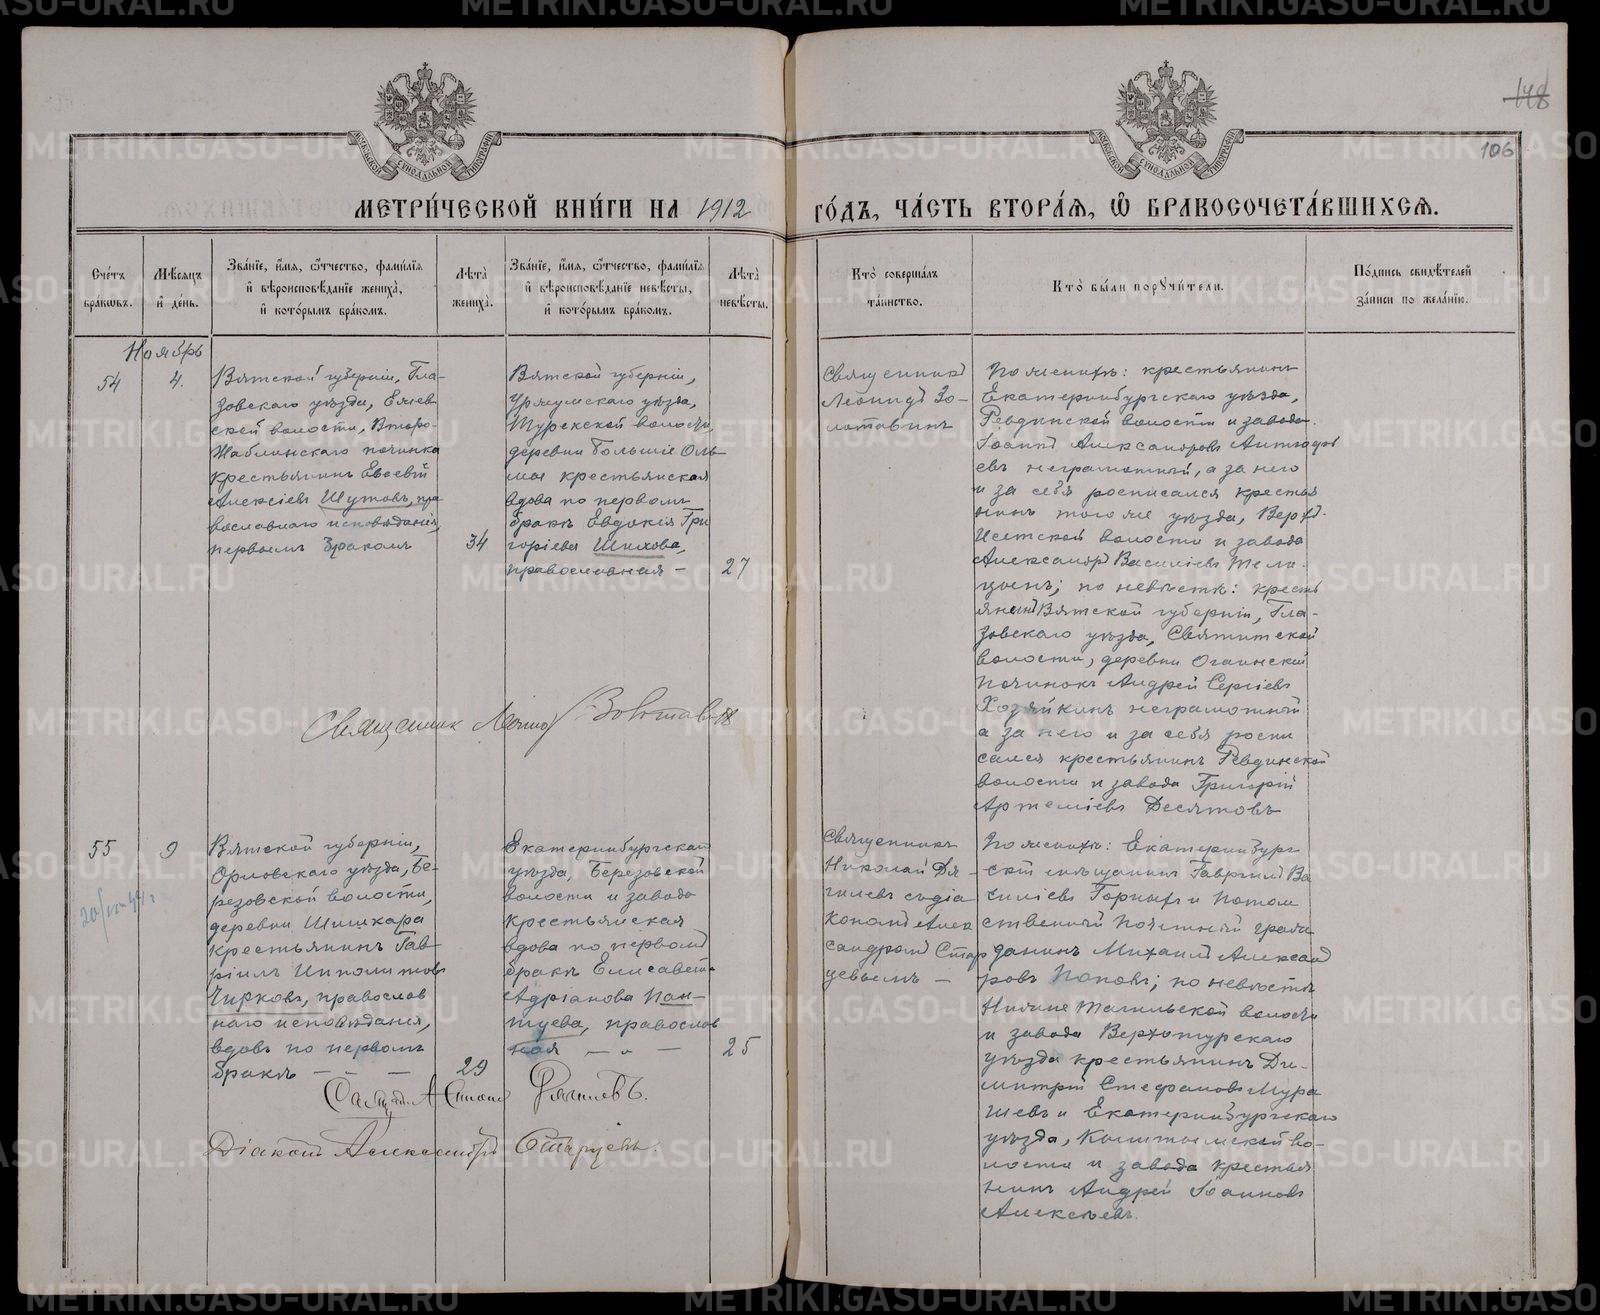 148
106
МЕТРИ́ЧЕСКОЙ КНИ́ГИ НА 1912 ГО́ДЪ, ЧА́СТЬ ВТОРА́Я, Ѡ БРАКОСОЧЕТА́ВШИХСЯ.
Сче́тъ бра́кѡвъ.
Мѣ́сяцъ и҆ де́нь.
Зва́нїе, и҆́мя, ѻ҆́тчество, фами́лїя
и҆ вѣроисповѣ́данїе жениха̀,
и҆ кото́рымъ бра́комъ.
Лѣта̀ жениха̀.
Зва́нїе, и҆́мя, ѻ҆́тчество, фами́лїя
и҆ вѣроисповѣ́данїе невѣ́сты,
и҆ кото́рымъ бра́комъ.
Лѣта̀ невѣ́сты.
Кто̀ соверша́лъ та́инство.
Кто̀ бы́ли порꙋчи́тели.
По́дпись свидѣ́телей за́писи по жела́нїю.
Ноябрь
54
4.
Вятской губерніи, Гла-
зовскаго уѣзда, Елев
ской волости, Второ-
Жаблинскаго починка
крестьянинъ Евсевій
Алексіевъ Шутовъ, пра
вославнаго исповѣданія,
первымъ бракомъ
34
Вятской губерніи,
Уржумскаго уѣзда,
Шурекской волости,
деревни Большіе Оль
крестьянская
вдова по первому
браку Евдокія Гри
горіева Шихова,
православная —
27
Священникъ
Леонидъ Зо-
лотавинъ
По женихѣ: крестьянинъ
Екатеринбургскаго уѣзда,
Ревдинской волости и завода
Іоаннъ Александровъ
евъ неграмотный, а за него
и за себя росписался кресть
нинъ того же уѣзда, Верхъ-
Исетской волости и завода
Александръ Василіевъ Тели-
цынъ; по невѣстѣ: кресть
янинъ Вятской губерніи, Гла-
зовскаго уѣзда, Святицской
волости, деревни
починокъ Андрей Сергіевъ
Хозяйкинъ неграмотный
а за него и за себя роспи
сался крестьянинъ Ревдинской
волости и завода Григорій
Артеміевъ Десятовъ
Священникъ Леонидъ Золотавинъ
55
9
20/VII-44 г
Вятской губерніи,
Орловскаго уѣзда, Бе-
резовской волости,
деревни Шишкара
крестьянинъ Гав-
ріилъ Ипполитовъ
Чирковъ, православ
наго исповѣданія,
вдовъ по первомъ
бракѣ — — —
29
Екатеринбургскаго
уѣзда, Березовской
волости и завода
крестьянская
вдова по первомъ
бракѣ Елисавета
Адріанова Пан-
туева, православ
ная — " —
25
Священникъ
Николай Дя-
гилевъ съ діа
кономъ Алек
сандромъ Стар
цевымъ —
По женихѣ: Екатеринбург-
скій мѣщанинъ Гавріилъ Ва
силіевъ Горныхъ и потом
ственный почетный граж
данинъ Михаилъ Александ
ровъ Поповъ; по невѣстѣ
Нижне Тагильской волости
и завода Верхотурскаго
уѣзда крестьянинъ Ди-
митрій Стефановъ Мура
шевъ и Екатеринбургскаго
уѣзда, Кыштымской во-
лости и завода крестья
нинъ Андрей Іоанновъ
Алексѣевъ.
Дягилевъ.
Діаконъ Александръ Старцевъ.
METRIKI.GASO-URAL.RU